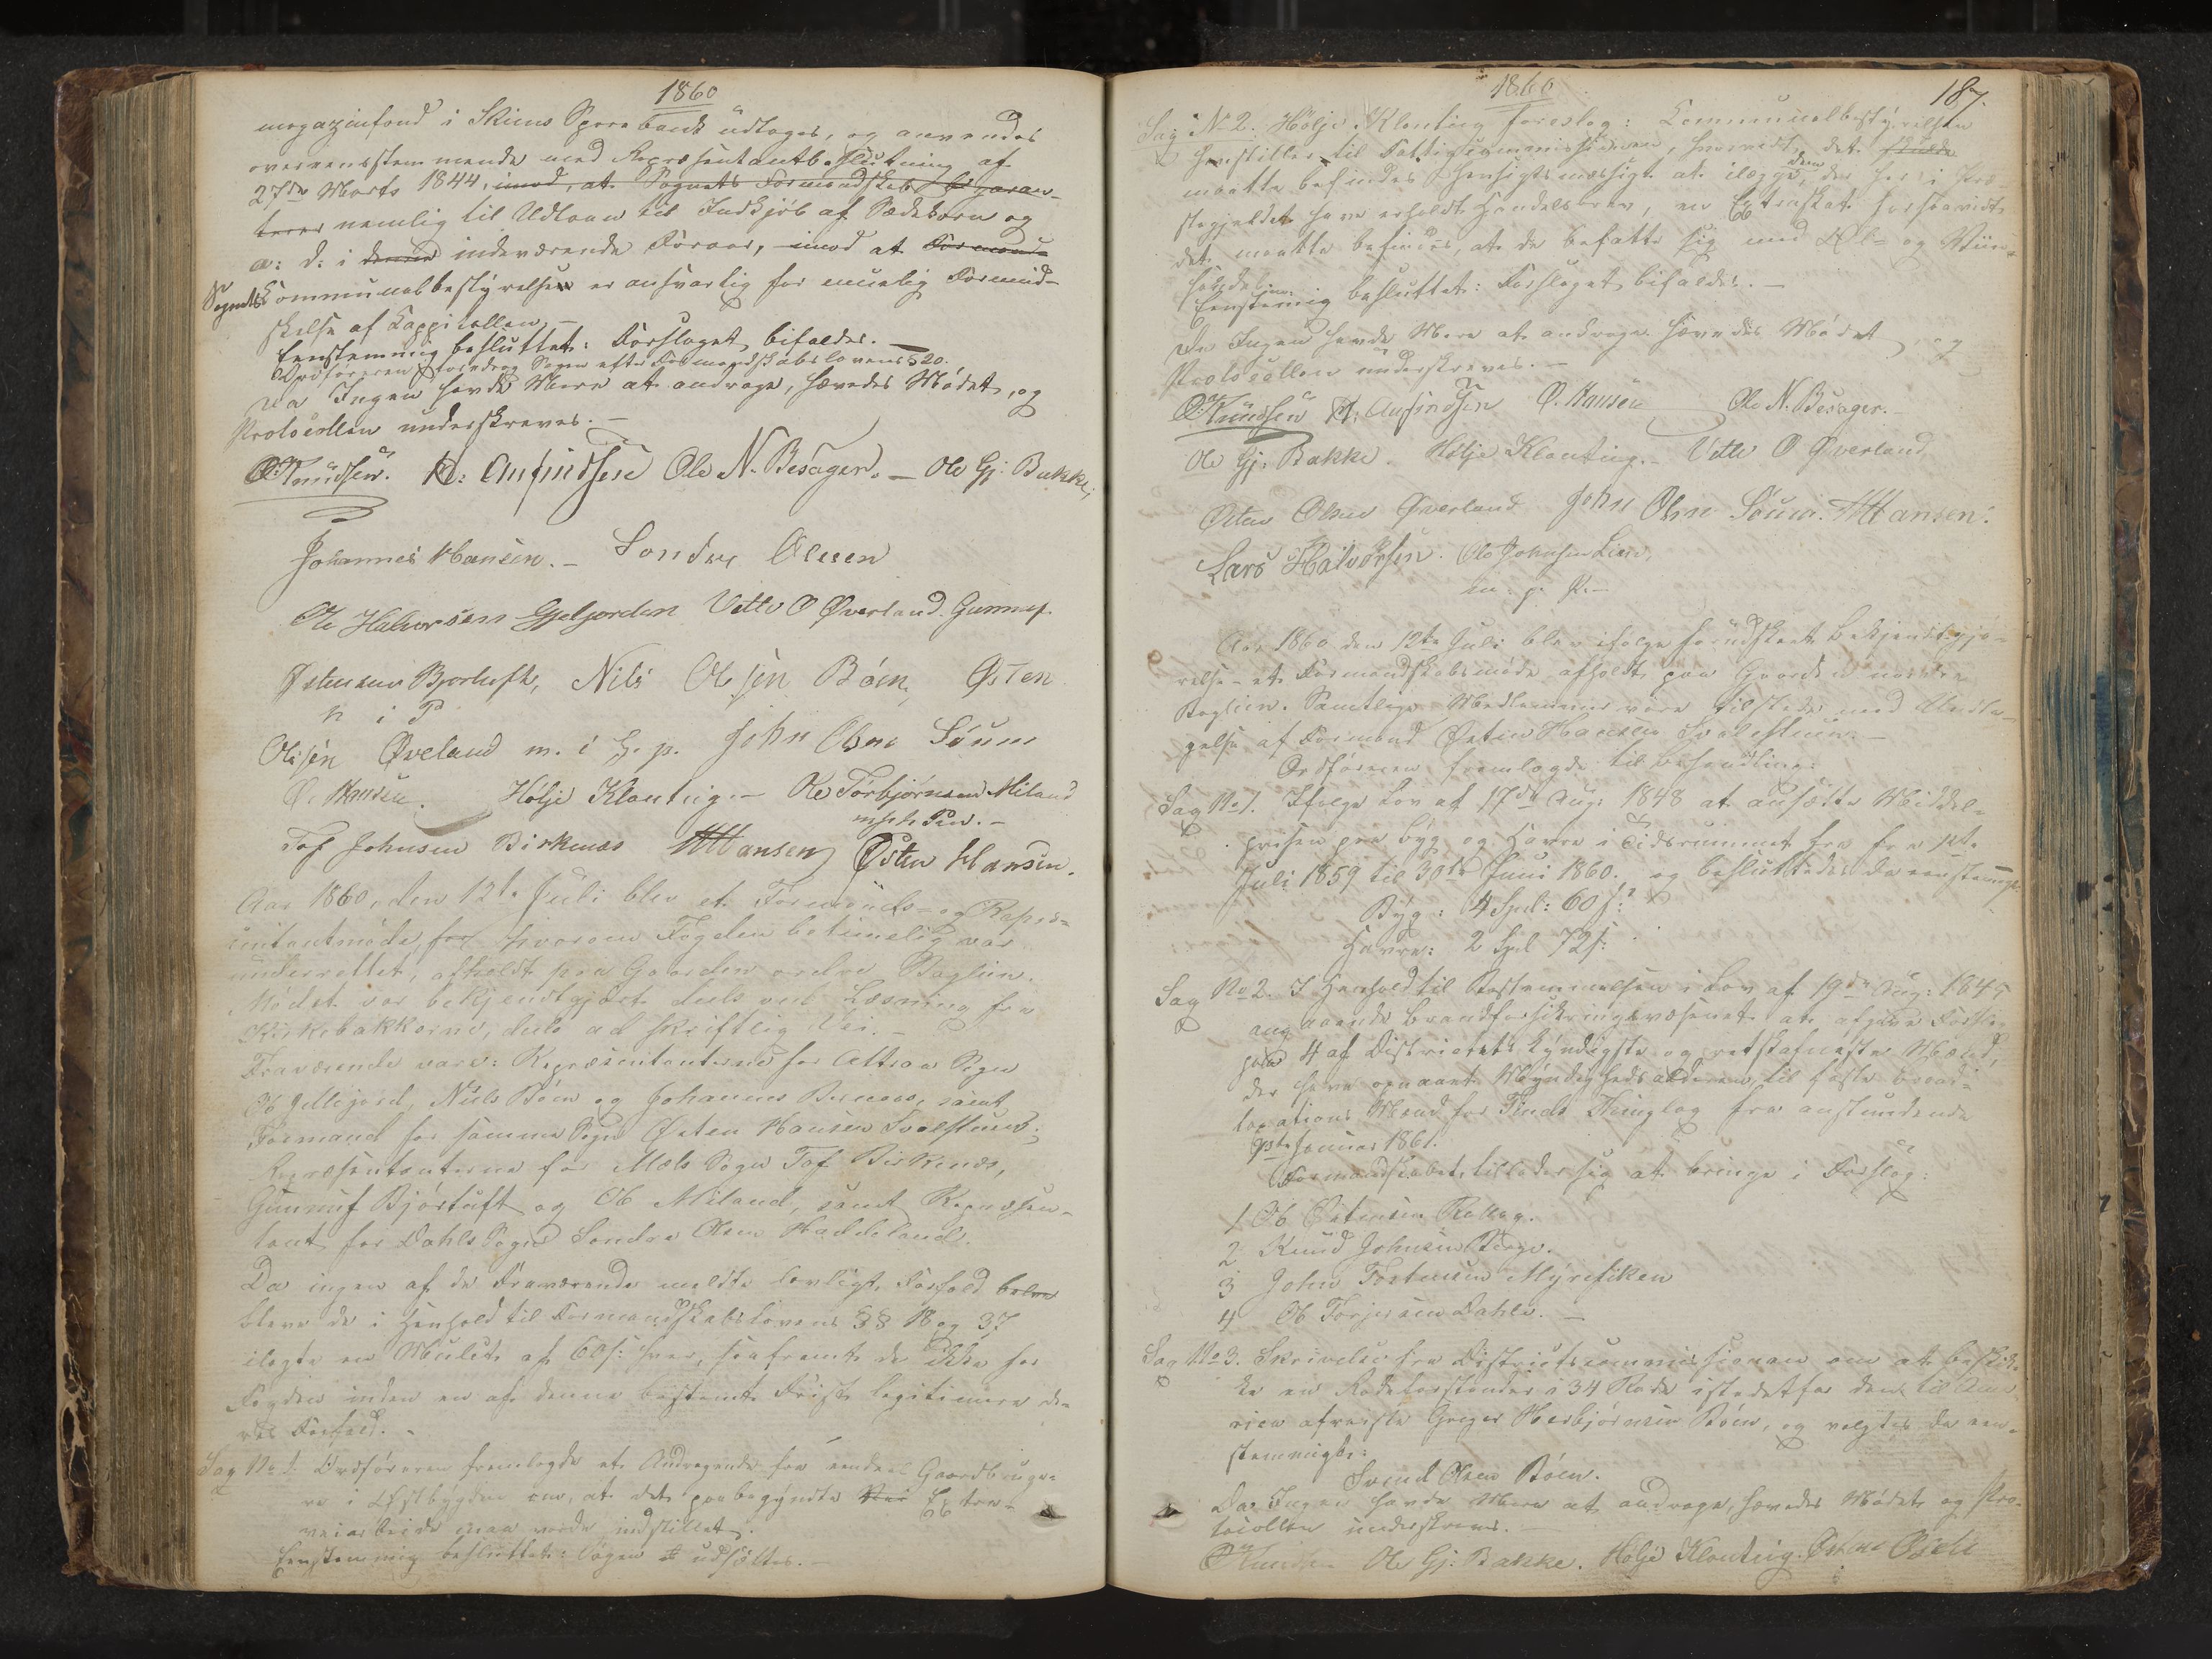 1860
magazinfond i Skiens Sparebank udtages, og anvendes
overeensstemmende med Repræsentantbeslutning af
27de Marts 1844, imod, at Sognets Formandskab garan-
terer nemlig til Udlaan til Indkjøb af Sædekorn og
a: d: i denne indeværende Foraar, imod at Formand-
Sognets Communalbestyrelsen er ansvarlig for muelig Formind-
skelse af Cappitallen. –
Eenstemmig besluttet: Forslaget bifaldes. –
Ordføreren foredrog Sagen efter Formandskabslovens § 20.
Da Ingen havde Mere at andrage, hævedes Mødet, og
Protocollen underskreves. –
O Knudsen. K: Anfindsen Ole N. Besager. – Ole Gj: Bakke,
Johannes Hansen. – Sondre Olesen
Ole Halvorsen Gjeljorden Vetle O Øverland. Gunnuf
Østensen Bjorhuft, Nils Olsen Böen, Østen
h i P
Olsen Øveland m. i h. p. John Olsne Söum
O. Hansen. Holje Klonteig. – Ole Torbjørnsen Miland
m p h Pen. –
Tof Johnsen Birkenæs HHansen Østen Hansen.
Aar 1860, den 12te Juli blev et Formands- og Repræ-
sentantmøde, for hvorom Fogden betimelig var
underrettet, afholdt paa Gaarden nordre Boglien.
Mødet var bekjendtgjort dels ved Læsning fra
Kirkebakkerne, dels ad skriftlig Vei. –
Fraværende vare: Repræsentanterne for Attraa Sogn
Ole Gellejord, Niels Böen og Johannes Bernaas, samt
Formand for samme Sogn Østen Hansen Svalestuen;
Repræsentanterne for Mæls Sogn Tof Birkenæs,
Gunnuf Bjørtuft og Ole Miland, samt Repræsen-
tant for Dahls Sogn Sondre Olsen Haddeland.
Da ingen af de Fraværende meldte lovligt Forfald
bleve de i Henhold til Formandskabslovens §§ 18 og 37
ilagte en Mulct af 60 s: hver, saafremt de ikke for
Fogden inden en af denne bestemt Frist legitimere de-
res Forfald. –
Sag No 1. Ordføreren fremlagde et Andragende fra endeel Gaardbruge-
re i Østbygden om, at det paabegyndte Vei Extra-
veiarbeide maa vorde indstillet.
Eenstemmig besluttet: Sagen udsættes. –
1860
187.
Sag No 2. Holje Klonteig foreslog: Communalbestyrelsen
henstiller til Fattigcommissionen, hvorvidt det skulde
maatte befindes Hensigtsmæssigt at ilægge dem, der her i Præ-
stegjeldet have erholdt Handelsbrev, en Extraskat forsaavidt
det maatte befindes, at de befatte sig med Øl- og Viin-
handel.
Eenstemmig besluttet: Forslaget bifaldes. –
Da Ingen havde Mere at andrage hævedes Mødet, og
Protocollen underskreves. –
O Knudsen K: Anfindsen O. Hansen Ole N. Besager. –
Ole Gj: Bakke. Holje Klonteig. Vetle O Øverland
Østen Olsen Øverland John Olsne Söum. HHansen.
Lars Halvorsen. Ole Johnsen Lien,
m. p. P. –
Aar 1860 den 12te Juli blev ifølge forudskeet Bekjendtgjø-
relse et Formandskabsmøde afholdt paa Gaarden nordre
Boglien. Samtlige Medlemmer vare tilstede med Undta-
gelse af Formand Østen Hansen Svalestuen. –
Ordføreren fremlagde til Behandling:
Sag No 1. Ifølge Lov af 17de Aug: 1848 at ansætte Middel-
prisen paa Byg og Havre i Tidsrummet fra 1ste
Juli 1859 til 30te Juni 1860. og besluttedes da eenstemmigt:
Byg: 4 Spd: 60 s:
Havre: 2 Spd 72 s:
Sag No 2. I Henhold til Bestemmelsen i Lov af 19de Aug: 1845
angaaende Brandforsikringsvæsenet at afgive Forslag
paa 4 af Districtets kyndigste og retskafneste Mænd,
der have opnaaet Myndighedsalderen til faste Brand-
taxations Mænd for Tinds Thinglag fra anstundende
1ste Januar 1861.
Formandskabet tillader sig at bringe i Forslag:
1 Ole Østensen Rollag.
2 Knud Johnsen Berge.
3 John Torstensen Myrefiken
4 Ole Torjersen Dahle. –
Sag No 3. Skrivelse fra Districtscommissionen om at beskik-
ke en Rodeforstander i 34 Rode istedetfor den til Ame-
rica afreiste Greger Herbjørnsen Böen, og valgtes da een-
stemmigt:
Svend Olsen Böen.
Da Ingen havde Mere at andrage, hævedes Mødet og Pro-
tocollen underskreves. –
O Knudsen Ole Gj: Bakke. Holje Klonteig.